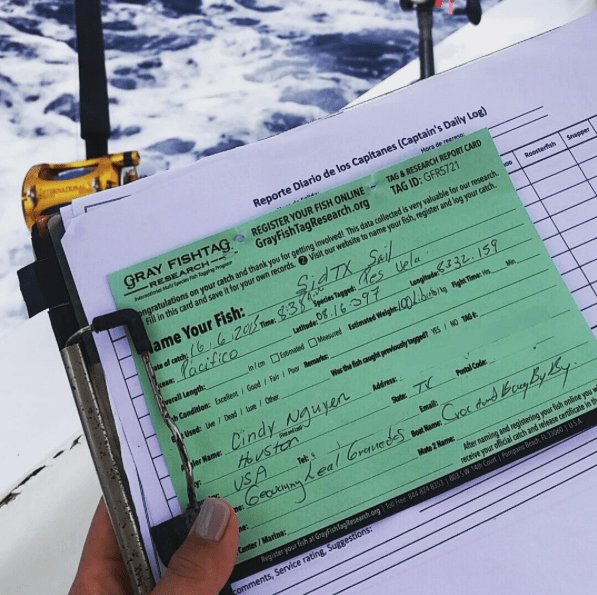 INTERNATIONAL
Reporte Diario de los Capitanes (Captain's Daily Log)
Hora de regreso:
Roosterfish Snapper
GRAY FISHTAG
RESEARCH
International Multi Species Fish Tagging Program
REGISTER YOUR FISH ONLINE
GrayFishTagResearch.org
TAG & RESEARCH REPORT CARD
TAG ID: GFR5721
ongratulations on your catch and thank you for getting involved! This data collected is very valuable for our research.
Fill in this card and save it for your own records. 2 Visit our website to name your fish, register and log your catch.
ame Your Fish: Sid TX Sail
ate of catch: 16.6.2015 Time: Species Tagged: Pes Vela
ean: Pacifico Latitude: 08.16.397 Longitude: 8332.159
verall Length: in/cm Estimated Measured Estimated Weight: 100 lb/kg Fight Time: Hrs Min
h Condition: Excellent / Good / Fair / Poor Remarks: Was the fish caught previously tagged? YES / NO TAG #:
Used: Live / Dead / Lure / Other
Name: Cindy Nguyen Address:
Houston State: TX Postal Code:
USA Tel: Email:
Leal Boat Name:
Mate 2 Name:
Center / Marina: After naming and registering your fish online you w
receive your official catch and release certificate in th
Register your fish at GrayFishTagResearch.org | Toll Free: 844 824 8353 | 803 S W 14th Court | Pompano Beach, FL 33060 | U.S.A
omments, Service rating, Suggestions: